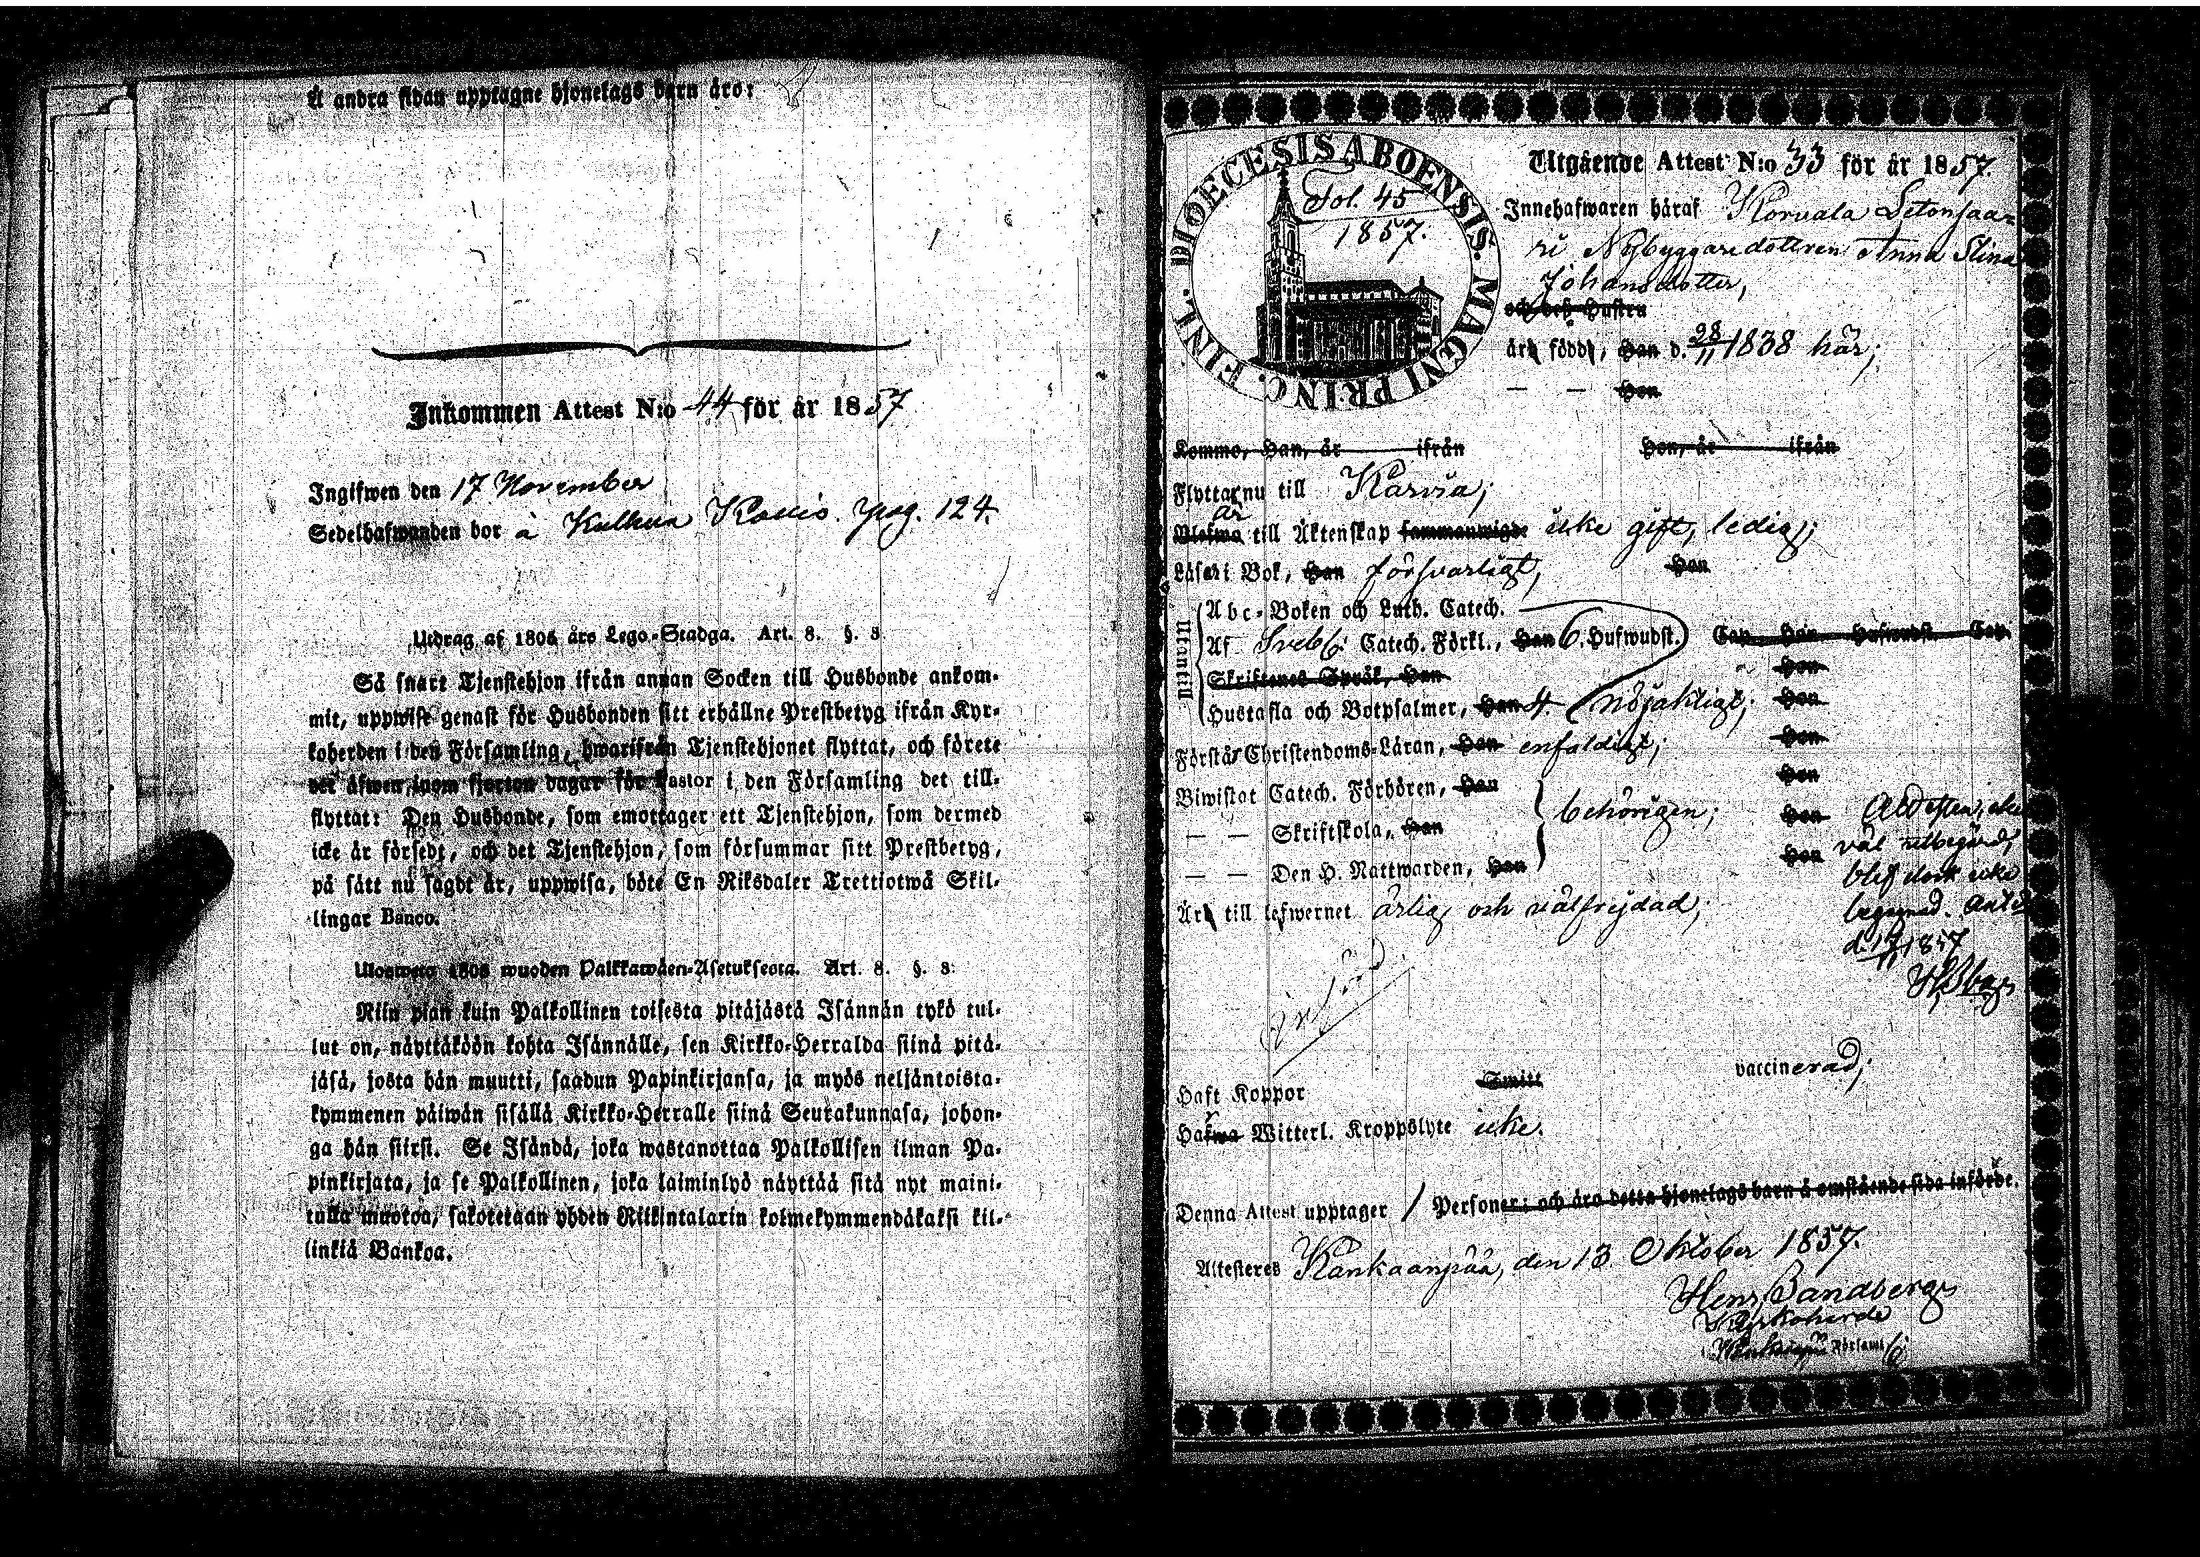 Å andra sidan upptagne hjonelags barn äro:
Inkommen Attest N:o 44 för år 1857
Ingifwen den 17 November
Sedelhafwanden bor à Kulhua Kouis. pag. 124.
Utdrag af 1805 års Lego-Stadga. Art. 8. §. 8
Så snart Tjenstehjon ifrån annan Socken till Husbonde ankom-
mit, uppwise genast för Husbonden sitt erhållne Prestbetyg ifrån Kyr-
koherden i den Församling, hwarifrån Tjenstehjonet flyttat, och förete
det äfwen, inom fjorton dagar för Pastor i den Församling det till-
flyttat: Den Husbonde, som emottager ett Tjenstehjon, som dermed
icke är försedt, och det Tjenstehjon, som försummar sitt Prestbetyg,
på sätt nu sagdt är, uppwisa, böte En Riksdaler Trettiotwå Skil-
lingar Banco.
Ulosweto 1805 wuoden Palkkawäen-Asetuksesta. Art. 8. §. 8:
Niin pian kuin Palkollinen toisesta pitäjästä Isännän tykö tul-
lut on, näyttäköön kohta Isännälle, sen Kirkko-Herralda siinä pitä-
jäsä, josta hän muutti, saadun Papinkirjansa, ja myös neljäntoista-
kymmenen päiwän sisällä Kirkko-Herralle siinä Seurakunnasa, johon-
ga hän siirsi. Se Isändä, joka wastanottaa Palkollisen ilman Pa-
pinkirjata, ja se Palkollinen, joka laiminlyö näyttää sitä nyt maini-
tulla muotoa, sakotetaan yhden Riikintalarin kolmekymmendäkaksi kil-
linkiä Bankoa.
DIOECESIS ABOENSIS. MAGNI PRINC. FINL.
Fol. 45
1857.
Utgående Attest N:o 33 för år 1857.
Innehafwaren häraf Korvala Letonsaa-
ri Nybyggaredottren Anna Stina
Johansdotter,
och dess Hustru
äro född, Han d. 28/11 1838 här;
— — Hon
Kommo, Han, år ifrån Hon, år ifrån
Flyttar nu till Karvia;
är
Blefwo till Äktenskap sammanwigde icke gift, ledig;
Läser i Bok, Han försvarligt, Hon
Utantill
Abc-Boken och Luth. Catech.
Af Sveb. Catech. Förkl., Han 6. Hufwudst. Cap. Hon Hufwudst. Cap.
Skriftenes Språk, Han Hon
Hustafla och Botpsalmer, Han 4. nöjaktigt; Hon
Förstår Christendoms-Läran, Han enfaldigt; Hon
Biwistat Catech. Förhören, Han Hon
— — Skriftskola, Han behörigen; Hon
— — Den H. Nattwarden, Han Hon
Är till lefwernet ärlig och välfrejdad;
Attesten, ehu
väl utbegärd,
blef dock icke
begagnad.
1857
vaccinerad;
Haft Koppor Smitt
Hafwa Witterl. Kroppslyte icke.
Denna Attest upptager 1 Personer; och äro detta hjonelags barn å omstående sida införde.
Attesteres Kankaanpää, den 13 Oktober 1857.
Henr. Sandberg
Kyrkoherde
Kankaanpää Församl